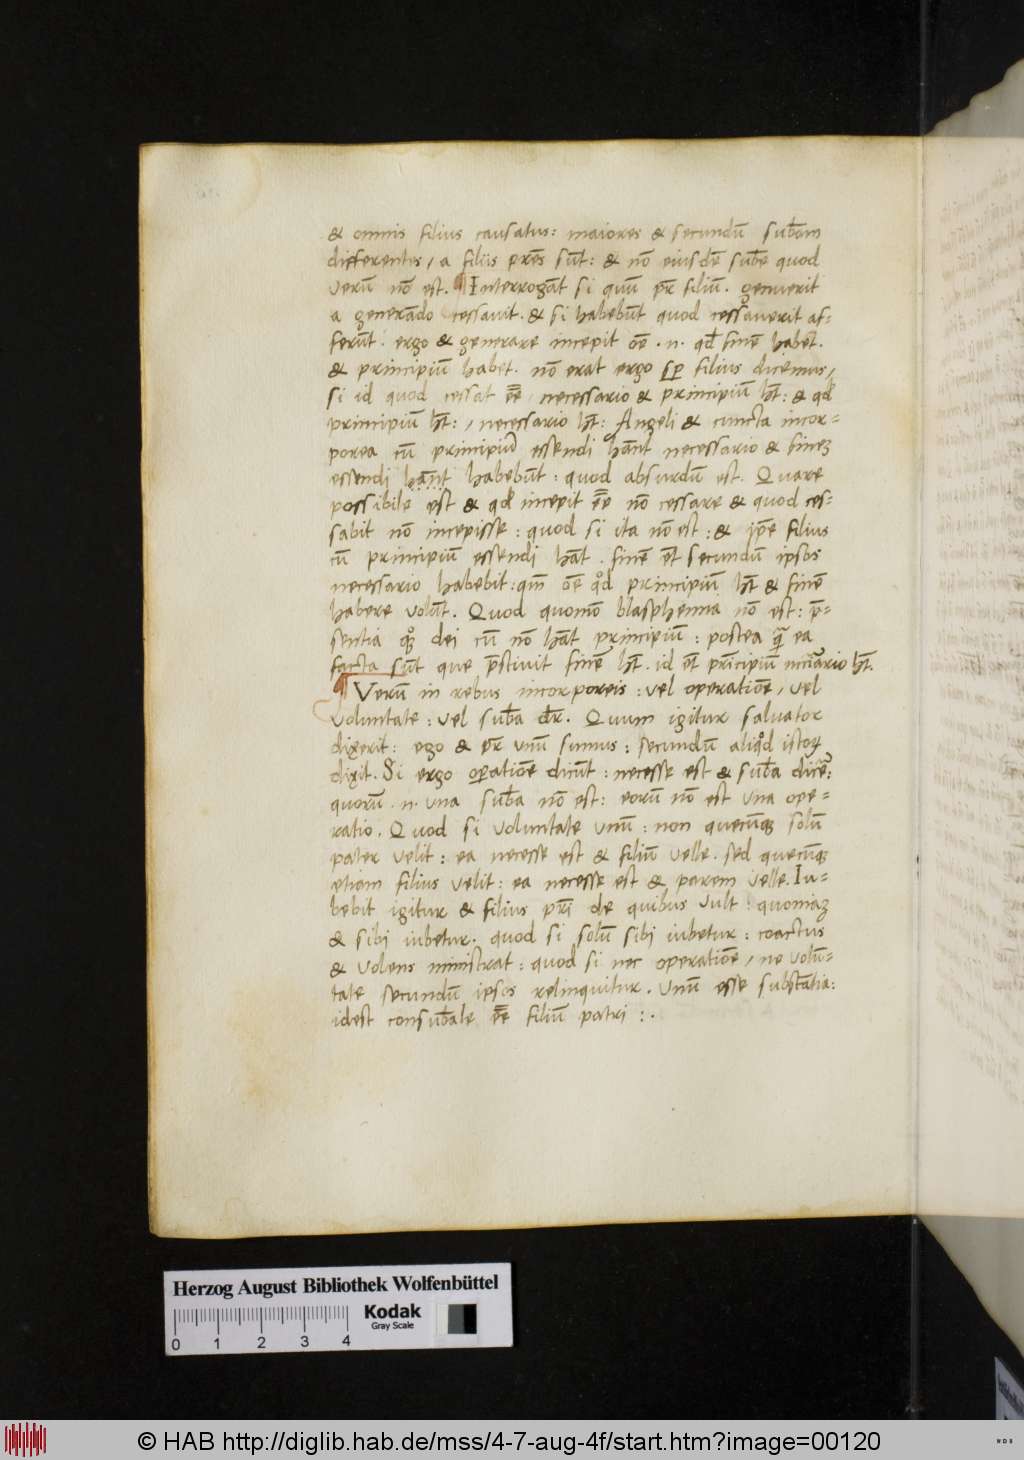 & omnis filius causatus: maiores & secundū sub̄am
differentis, a filiis pr̄es sūt: & nō eiusdē sub̄e quod
verū nō est. ¶ Interrogāt si quū pr̄ filiū. genuerit
a generādo cessavit. & si habebūt quod cessaverit af-
ferūt. ergo & generare incepit oē. n. qd̄ finē habet.
& principiū habet. nō erat ergo sꝑ filius dicemus,
si id quod cessat eē̄, necessario & principiū h̄t: & qd̄
principiū h̄t:, necessario h̄t: Angeli & cuncta incor-
porea cū principiū essendi hāt necessario & fineꝫ
essendi hānt habebūt: quod absurdū est. Quare
possibile est & qd̄ incepit eē̄ nō cessare & quod ces-
sabit nō incepisse: quod si ita nō est: & ip̄e filius
cū principiū essendi hāt. finē et̄ secundū ipsos
necessario habebit: qm̄ oē qd̄ principiū h̄t & finē
habere volūt. Quod quomō blasphemia nō est: p̄-
sentia dei cū nō hāt principiū: postea ea
facta sūt que p̄stivit finē h̄t. id et̄ prīcipiū h̄t.
¶ Verū in rebus incorporeis: vel operatiōe, vel
voluntate: vel sub̄a dr̄. Quum igitur salvator
dixerit: ego & pr̄ unū sumus: secundū aliqd̄ istoꝝ
dixit. Si ergo oꝑatiōe dicūt: necesse est & sub̄a
quorū. n. una sub̄a nō est: eorū nō est una ope-
ratio. Quod si voluntate unū: non quecūqꝫ solū
pater velit: ea necesse est & filiū velle. sed quecūqꝫ
etiam filius velit: ea necesse est & parem velle. Iu-
bebit igitur & filius pr̄i de quibus vult: quoniaꝫ
& sibi iubetur. quod si solū sibi iubetur: coactus
& volens ministrat: quod si nec operatiōe, ne volū-
tate secundū ipsos relinquitur. Unū esse substātia:
idest consub̄ale eē̄ filiū patri:.
Herzog August Bibliothek Wolfenbüttel
0 1 2 3 4
Kodak
Gray Scale
© HAB http://diglib.hab.de/mss/4-7-aug-4f/start.htm?image=00120